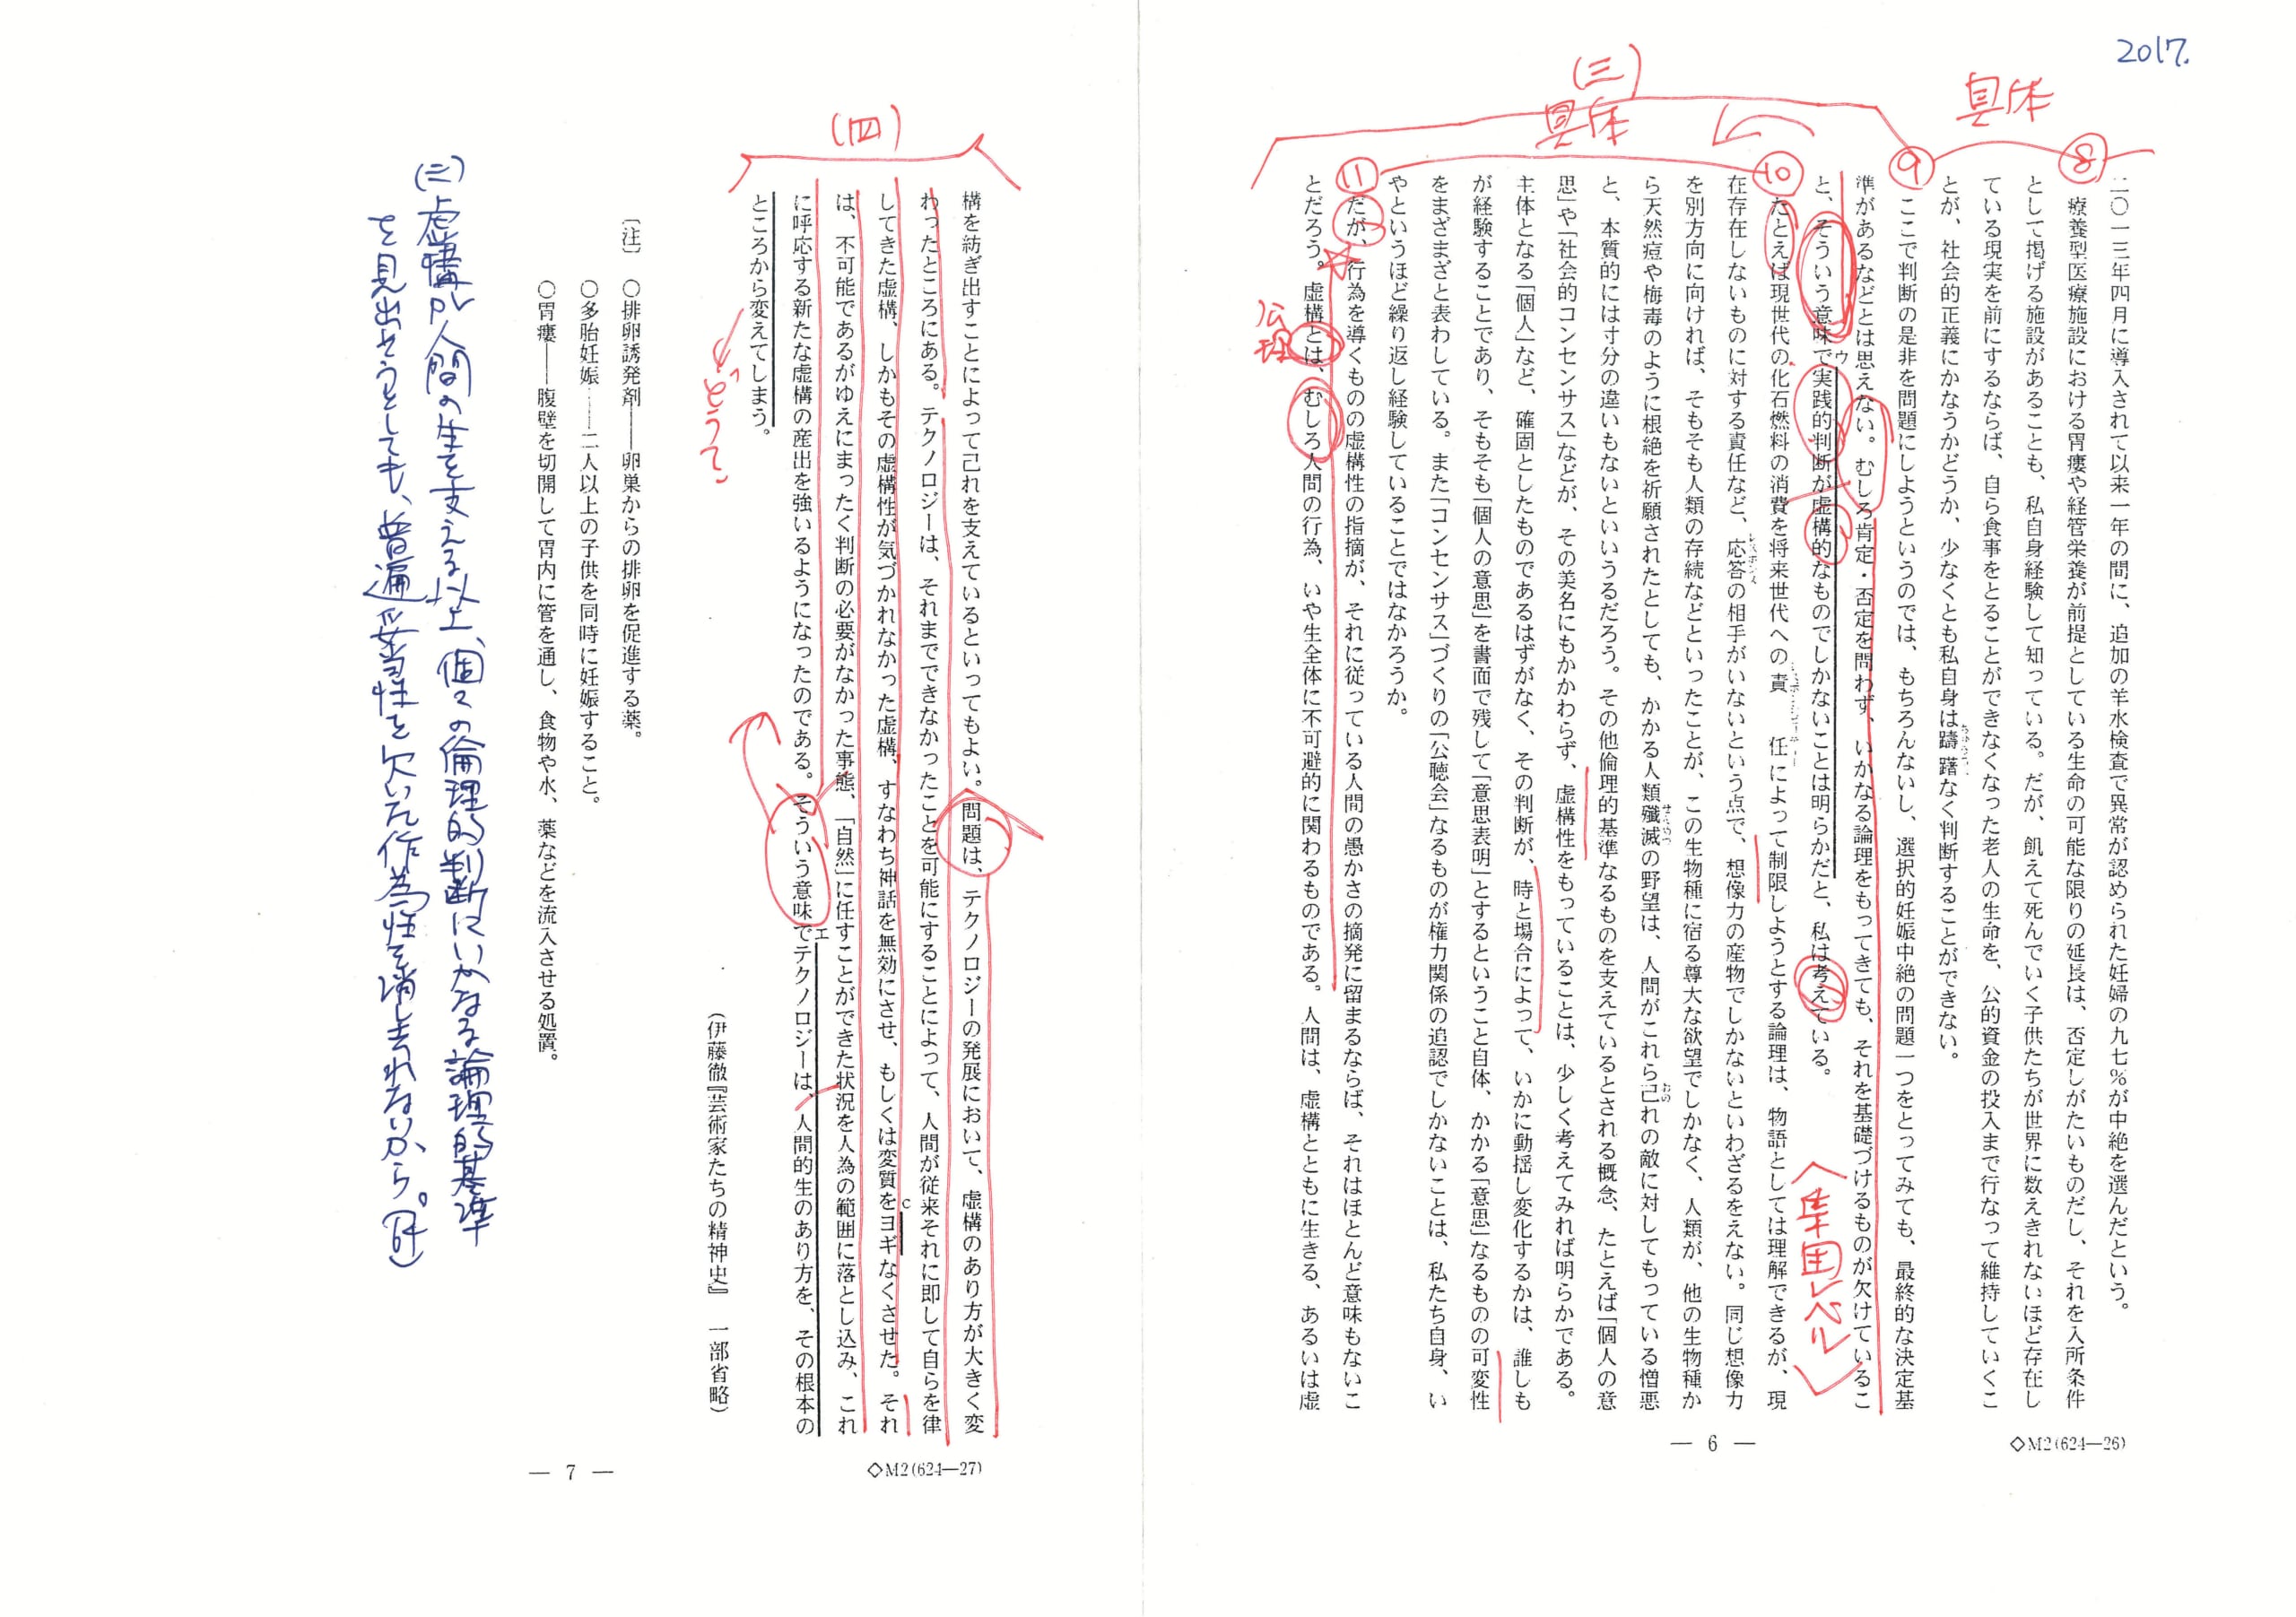 2017.
具体
(三)
具体
⑧
⑨
⑩
⑪
二〇一三年四月に導入されて以来一年の間に、追加の羊水検査で異常が認められた妊婦の九七%が中絶を選んだという。
療養型医療施設における胃瘻や経管栄養が前提としている生命の可能な限りの延長は、否定しがたいものだし、それを入所条件
として掲げる施設があることも、私自身経験して知っている。だが、飢えて死んでいく子供たちが世界に数えきれないほど存在し
ている現実を前にするならば、自ら食事をとることができなくなった老人の生命を、公的資金の投入まで行なって維持していくこ
とが、社会的正義にかなうかどうか、少なくとも私自身は躊躇なく判断することができない。
ここで判断の是非を問題にしようというのでは、もちろんないし、選択的妊娠中絶の問題一つをとってみても、最終的な決定基
準があるなどとは思えない。むしろ肯定・否定を問わず、いかなる論理をもってきても、それを基礎づけるものが欠けているこ
と、そういう意味で実践的判断が虚構的なものでしかないことは明らかだと、私は考えている。
ウ
〈集団レベル〉
たとえば現世代の化石燃料の消費を将来世代への責任によって制限しようとする論理は、物語としては理解できるが、現
在存在しないものに対する責任など、応答の相手がいないという点で、想像力の産物でしかないといわざるをえない。同じ想像力
レスポンス
を別方向に向ければ、そもそも人類の存続などといったことが、この生物種に宿る尊大な欲望でしかなく、人類が、他の生物種か
ら天然痘や梅毒のように根絶を祈願されたとしても、かかる人類殲滅の野望は、人間がこれら己れの敵に対してもっている憎悪
せんめつ
おの
と、本質的には寸分の違いもないといいうるだろう。その他倫理的基準なるものを支えているとされる概念、たとえば「個人の意
思」や「社会的コンセンサス」などが、その美名にもかかわらず、虚構性をもっていることは、少しく考えてみれば明らかである。
主体となる「個人」など、確固としたものであるはずがなく、その判断が、時と場合によって、いかに動揺し変化するかは、誰しも
が経験することであり、そもそも「個人の意思」を書面で残して「意思表明」とするということ自体、かかる「意思」なるものの可変性
をまざまざと表わしている。また「コンセンサス」づくりの「公聴会」なるものが権力関係の追認でしかないことは、私たち自身、い
やというほど繰り返し経験していることではなかろうか。
だが、行為を導くものの虚構性の指摘が、それに従っている人間の愚かさの摘発に留まるならば、それはほとんど意味もないこ
とだろう。虚構とは、むしろ人間の行為、いや生全体に不可避的に関わるものである。人間は、虚構とともに生きる、あるいは虚
公理
— 6 —
◇M2(624—26)
(四)
構を紡ぎ出すことによって己れを支えているといってもよい。問題は、テクノロジーの発展において、虚構のあり方が大きく変
わったところにある。テクノロジーは、それまでできなかったことを可能にすることによって、人間が従来それに即して自らを律
してきた虚構、しかもその虚構性が気づかれなかった虚構、すなわち神話を無効にさせ、もしくは変質をヨギなくさせた。それ
c
は、不可能であるがゆえにまったく判断の必要がなかった事態、「自然」に任すことができた状況を人為の範囲に落とし込み、これ
に呼応する新たな虚構の産出を強いるようになったのである。そういう意味でテクノロジーは、人間的生のあり方を、その根本の
エ
ところから変えてしまう。
どうて
(伊藤徹『芸術家たちの精神史』 一部省略)
〔注〕 〇排卵誘発剤——卵巣からの排卵を促進する薬。
〇多胎妊娠……二人以上の子供を同時に妊娠すること。
〇胃瘻——腹壁を切開して胃内に管を通し、食物や水、薬などを流入させる処置。
— 7 —
◇M2(624—27)
(三)
虚構が人間の生を支える以上、個々の倫理的判断にいかなる論理的基準
を見出そうとしても、普遍妥当性を欠いた作為性を消し去れないから。